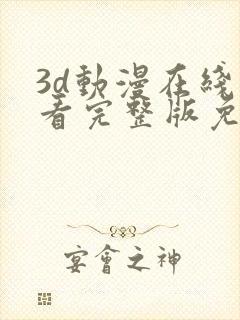 3d動漫在綫
看完整版免
宴會之神